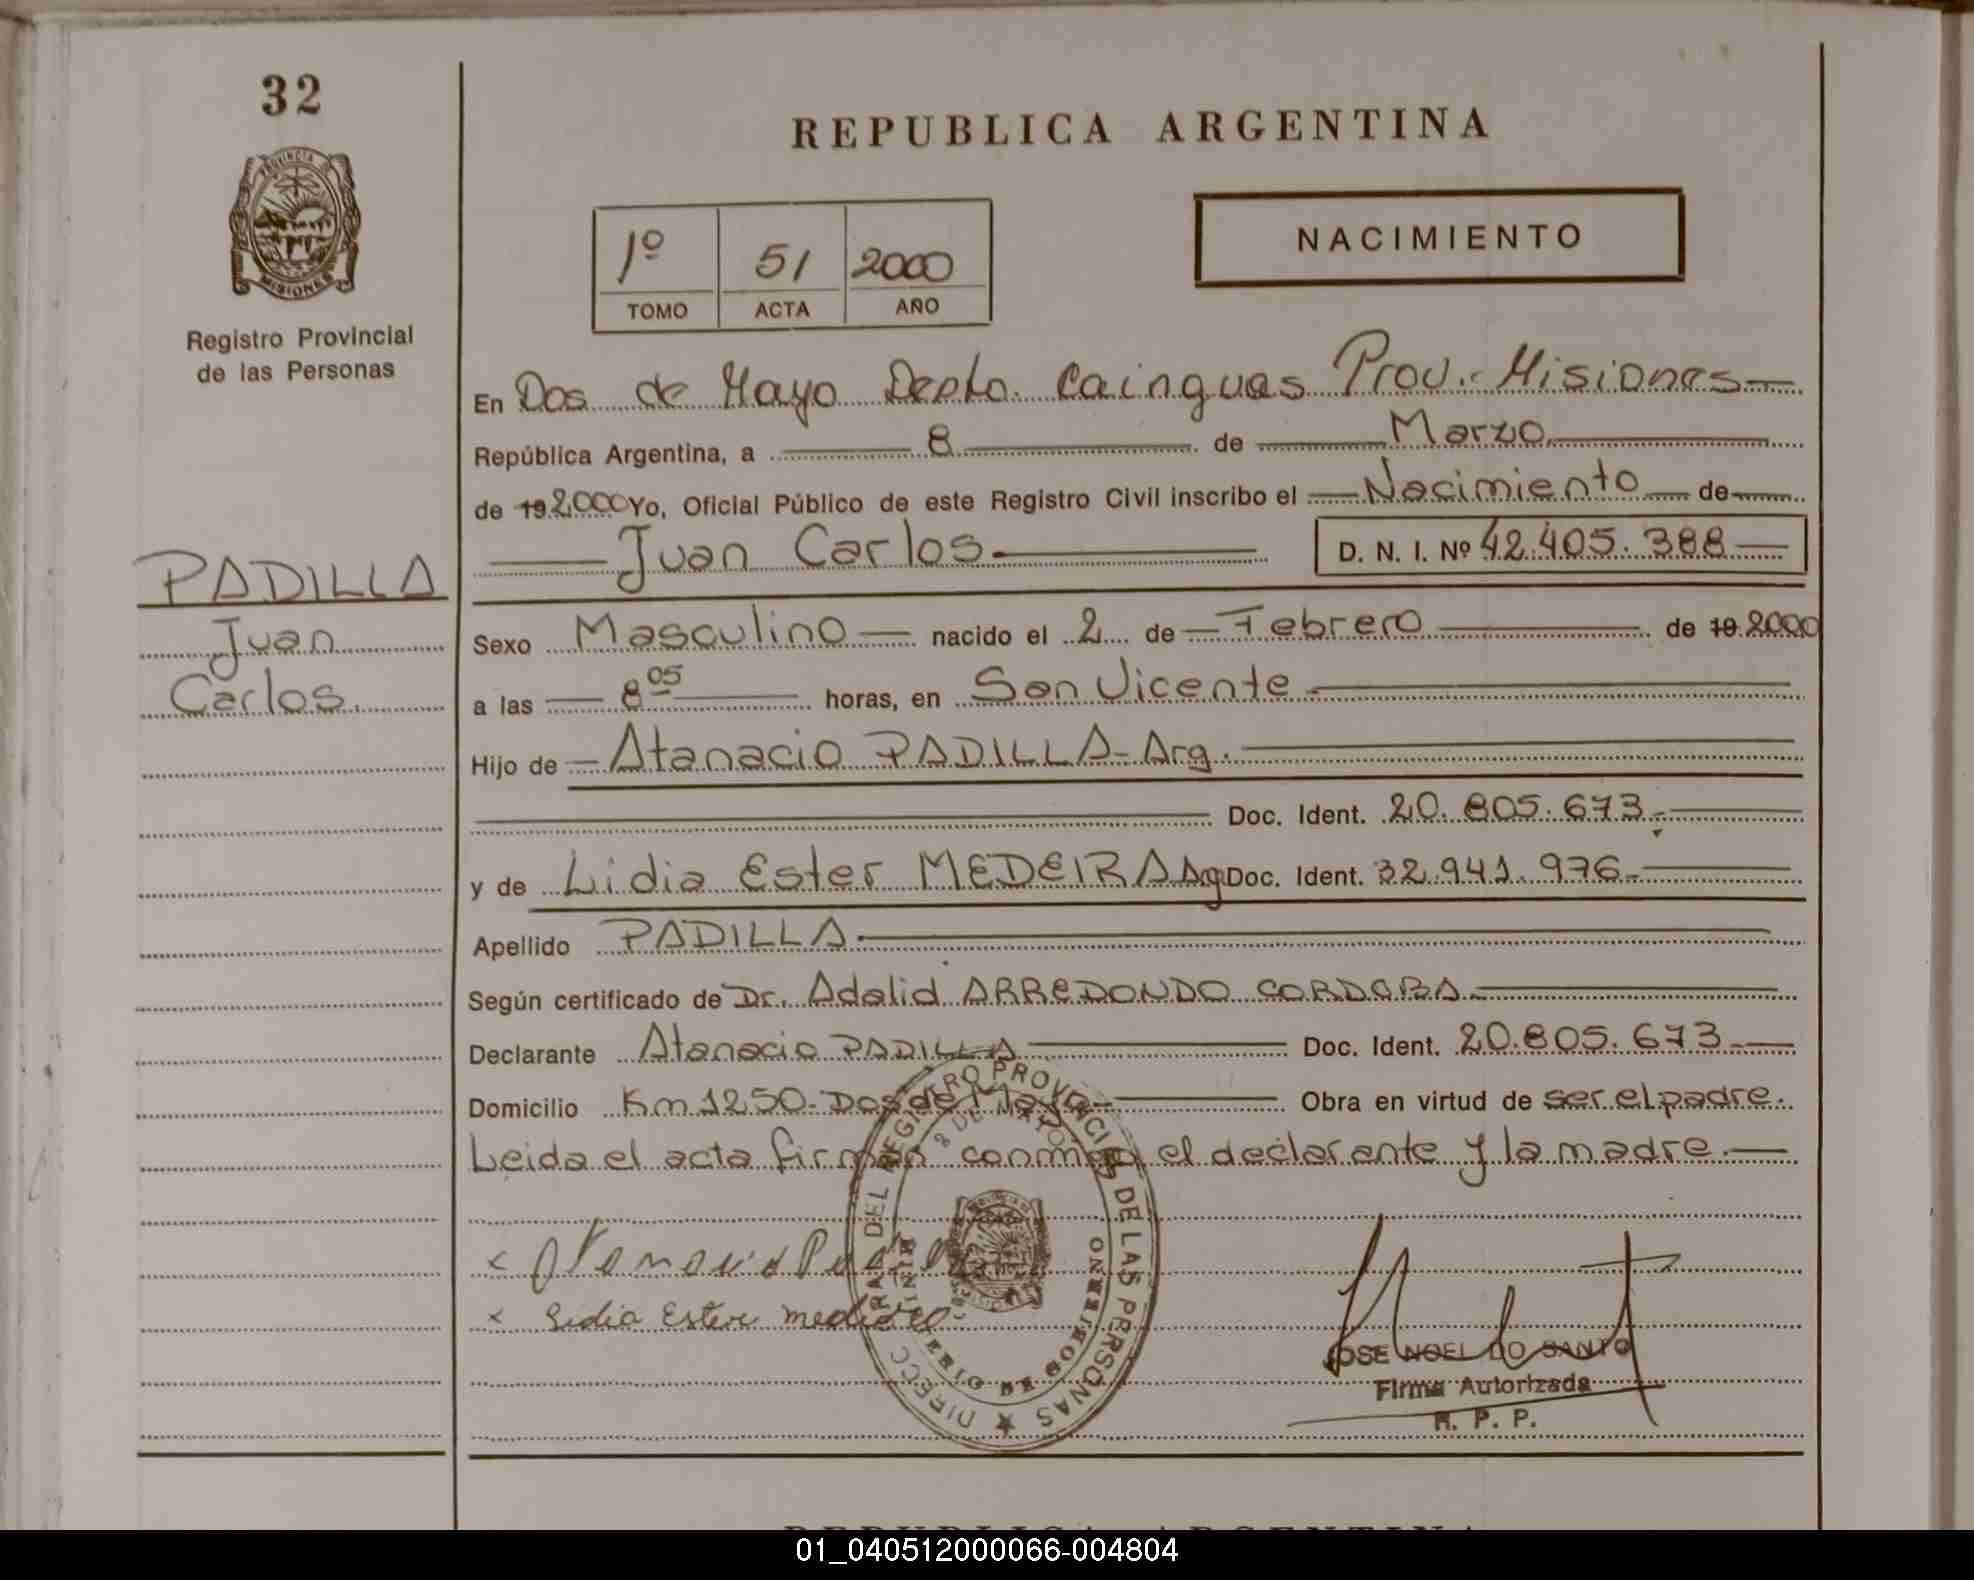 32
REPUBLICA ARGENTINA
PROVINCIA DE
MISIONES
Registro Provincial
de las Personas
1º 51 2000
TOMO ACTA AÑO
NACIMIENTO
En Dos de Mayo Depto. Cainguas Prov. Misiones
República Argentina, a 8 de Marzo
de 19 2000 Yo, Oficial Público de este Registro Civil inscribo el Nacimiento de
Juan Carlos. D. N. I. Nº 42.405.388
PADILLA
Juan
Carlos.
Sexo Masculino nacido el 2 de Febrero de 19 2000
a las 8 05 horas, en San Vicente
Hijo de Atanacio PADILLA - Arg.
Doc. Ident. 20.805.673.
y de Lidia Ester MEDEIRA Arg Doc. Ident. 32.941.976.
Apellido PADILLA.
Según certificado de Dr. Adalid ARREDONDO CORDOBA.
Declarante Atanacio PADILLA Doc. Ident. 20.805.673
Domicilio Km 1250 - Dos de Mayo Obra en virtud de ser el padre.
Leida el acta firman conmigo el declarante y la madre.
DIRECC RAL DEL REGISTRO PROVINCIAL DE LAS PERSONAS
MINISTERIO DE GOBIERNO
x Atanacio Padilla
x Lidia Ester medeira
JOSE NOEL DO SANTO
Firma Autorizada
R. P. P.
REPUBLICA ARGENTINA
01_040512000066-004804